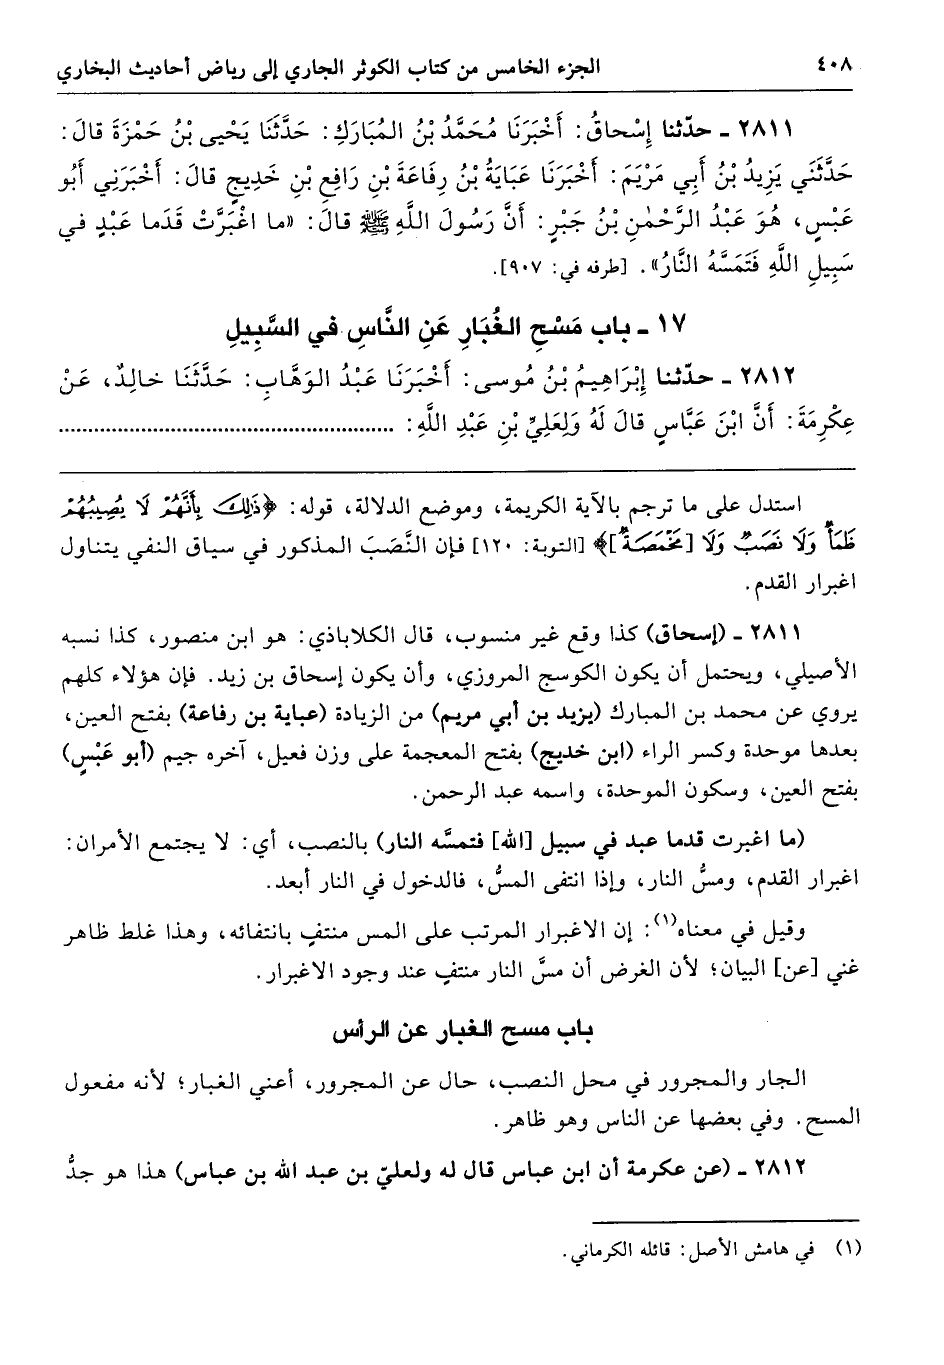 ٤٠٨ الجزء الخامس من كتاب الكوثر الجاري إلى رياض أحاديث البخاري
٢٨١١ ـ حدّثنا إِسْحاقُ: أَخْبَرَنَا مُحَمَّدُ بْنُ المُبَارَكِ: حَدَّثَنَا يَحْيى بْنُ حَمْزَةَ قالَ:
حَدَّثَنِي يَزِيدُ بْنُ أَبِي مَرْيَمَ: أَخْبَرَنَا عَبَايَةُ بْنُ رِفَاعَةَ بْنِ رَافِعِ بْنِ خَدِيجٍ قالَ: أَخْبَرَنِي أَبُو
عَبْسٍ، هُوَ عَبْدُ الرَّحْمٰنِ بْنُ جَبْرٍ: أَنَّ رَسُولَ اللَّهِ ﷺ قالَ: «ما اغْبَرَّتْ قَدَما عَبْدٍ في
سَبِيلِ اللَّهِ فَتَمَسَّهُ النَّارُ». [طرفه في: ٩٠٧].
١٧ ـ باب مَسْحِ الغُبَارِ عَنِ النَّاسِ في السَّبِيلِ
٢٨١٢ ـ حدّثنا إِبْرَاهِيمُ بْنُ مُوسى: أَخْبَرَنَا عَبْدُ الوَهَّابِ: حَدَّثَنَا خالِدٌ، عَنْ
عِكْرِمَةَ: أَنَّ ابْنَ عَبَّاسٍ قالَ لَهُ وَلِعَلِيِّ بْنِ عَبْدِ اللَّهِ: ........................................................
استدل على ما ترجم بالآية الكريمة، وموضع الدلالة، قوله: ﴿ذَٰلِكَ بِأَنَّهُمْ لَا يُصِيبُهُمْ
ظَمَأٌ وَلَا نَصَبٌ وَلَا [مَخْمَصَةٌ]﴾ [التوبة: ١٢٠] فإن النَّصَبَ المذكور في سياق النفي يتناول
اغبرار القدم.
٢٨١١ ـ (إسحاق) كذا وقع غير منسوب، قال الكلاباذي: هو ابن منصور، كذا نسبه
الأصيلي، ويحتمل أن يكون الكوسج المروزي، وأن يكون إسحاق بن زيد. فإن هؤلاء كلهم
يروي عن محمد بن المبارك (يزيد بن أبي مريم) من الزيادة (عباية بن رفاعة) بفتح العين،
بعدها موحدة وكسر الراء (ابن خديج) بفتح المعجمة على وزن فعيل، آخره جيم (أبو عَبْسٍ)
بفتح العين، وسكون الموحدة، واسمه عبد الرحمن.
(ما اغبرت قدما عبد في سبيل [الله] فتمسَّه النار) بالنصب، أي: لا يجتمع الأمران:
اغبرار القدم، ومسُّ النار، وإذا انتفى المسُّ، فالدخول في النار أبعد.
وقيل في معناه(١): إن الاغبرار المرتب على المس منتفٍ بانتفائه، وهذا غلط ظاهر
غني [عن] البيان؛ لأن الغرض أن مسَّ النار منتفٍ عند وجود الاغبرار.
باب مسح الغبار عن الرأس
الجار والمجرور في محل النصب، حال عن المجرور، أعني الغبار؛ لأنه مفعول
المسح. وفي بعضها عن الناس وهو ظاهر.
٢٨١٢ ـ (عن عكرمة أن ابن عباس قال له ولعليّ بن عبد الله بن عباس) هذا هو جدُّ
(١) في هامش الأصل: قائله الكرماني.